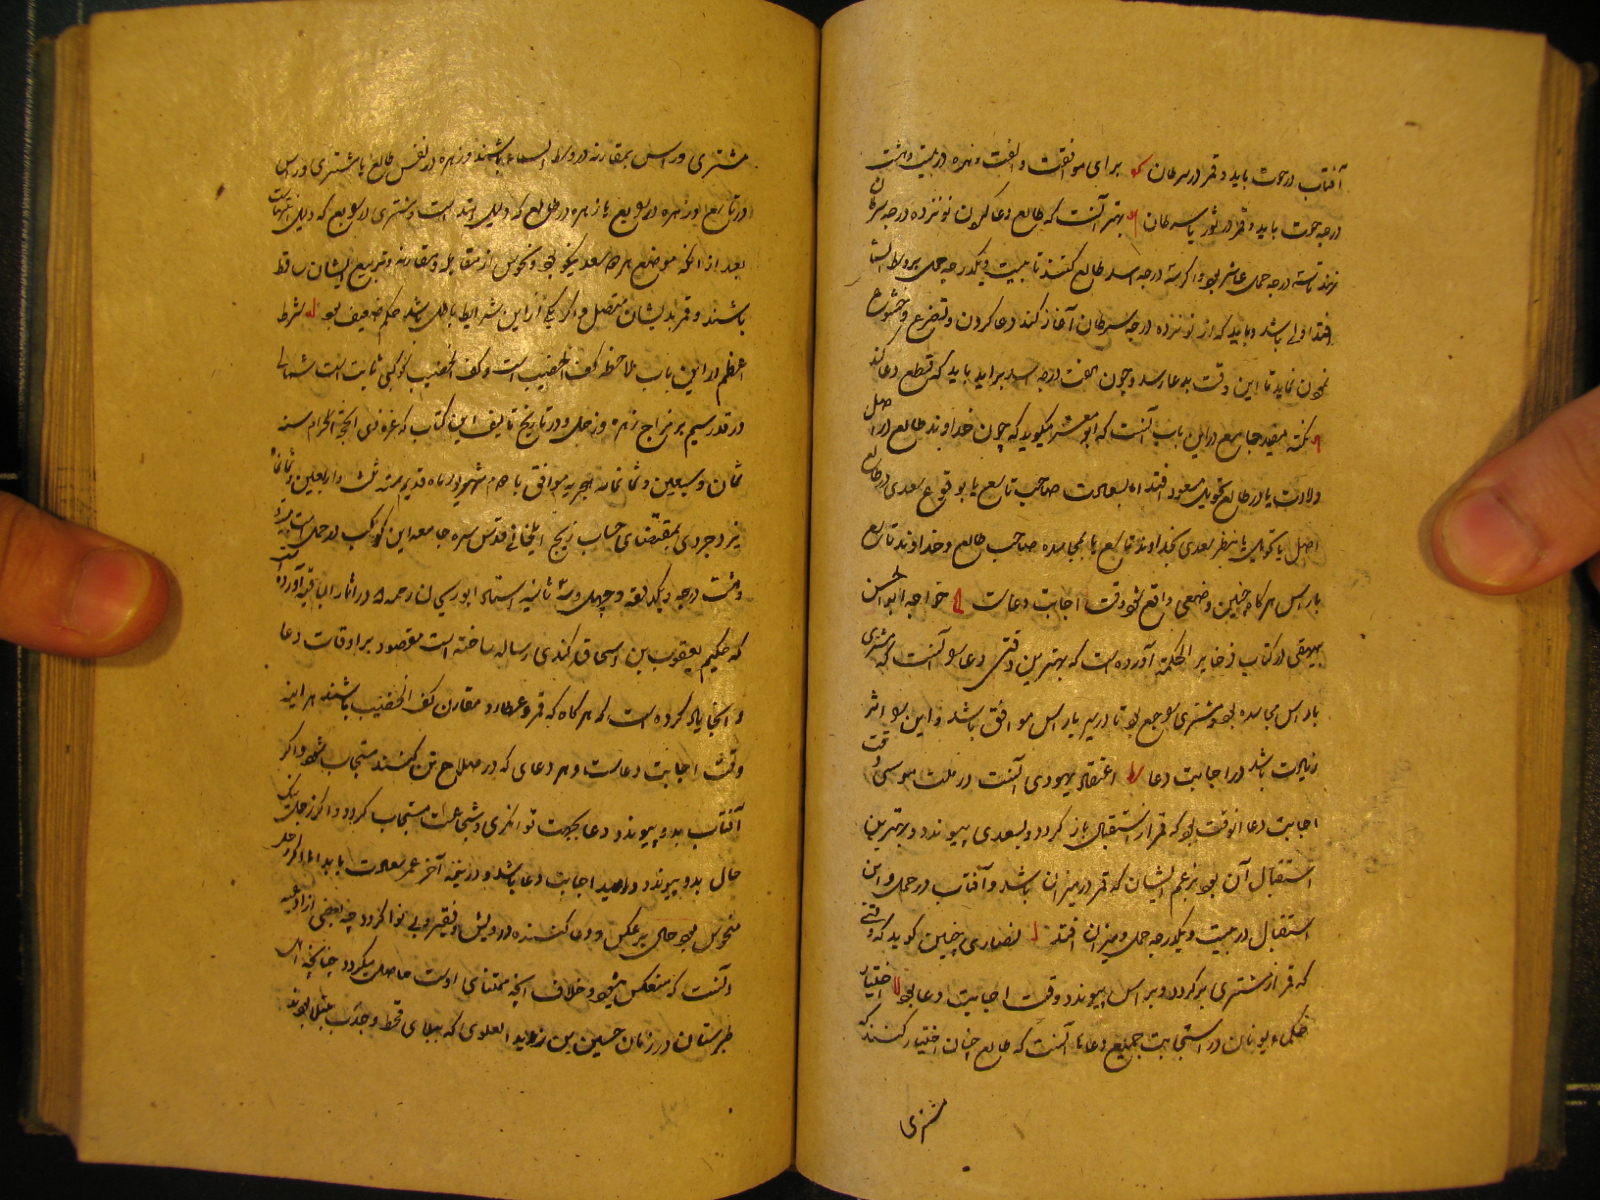 آفتاب در حوت باید و قمر در سرطان کو برای موافقت و الفت زهره در بیت و هشت
درجه حوت باید و قمر در ثور یا سرطان بهتر آنست که طالع دعا کردن نوزده درجه سرطان
نهند تا سه درجه حمل عاشر بود و اگر سه درجه اسد طالع کنند تا بیست و یکدرجه حمل بر وسط السما
افتد اولی باشد و باید که از نوزده درجه سرطان آغاز کند دعا کردن و تضرع و خشوع
نمودن نماید تا این وقت بدعا رسد و چون هفت درجه اسد براید باید که قطع دعا کند
نکته مفید جامع در این باب آنست که ابو معشر میگوید که چون خداوند طالع در اصل
ولادت یا در طالع تحویل مسعود افتد اما بسعادت صاحب تاسع یا بوقوع سعدی در طالع
اصل یا تحویل یا بنظر سعدی بخداوند تاسع یا بمجاسده صاحب طالع و خداوند تاسع
با راس هرگاه چنین وضعی واقع شود وقت اجابت دعاست خواجه ابو الحسن
بیهقی در کتاب ذخایر الحکمه آورده است که بهترین وقتی دعا را آنست که مشتری
با راس مجاسده بود و مشتری راجع بود تا در سیر با راس موافق باشد و این را اثر
زیادت باشد در اجابت دعا اعتقاد یهودی آنست در ملت موسی وقت
اجابت دعا آنوقت بود که قمر از استقبال باز گردد و بسعدی پیوندد و بهترین
استقبال آن بود بزعم ایشان که قمر در میزان باشد و آفتاب در حمل و این
استقبال در بیست و یکدرجه حمل و میزان افتد نصاری چنین گوید که وقتی
که قمر از مشتری برگردد و براس پیوندد وقت اجابت دعا بود اختیار
حکماء یونان در استجابت جمیع دعاها آنست که طالع چنان اختیار کنند که
مشتری
مشتری و راس بمقارنه در وسط السماء باشند و زهره در نفس طالع یا مشتری و راس
در تاسع و زهره در رابع یا زهره در طالع که دلیل ابتداست و مشتری در رابع که دلیل انتهاست
بعد از آنکه موضع هر دو سعد نیکو بود و نحوس از مقابله و مقارنه و تربیع ایشان ساقط
باشند و قمر بدیشان متصل و اگر یکی از این شرایط باطل باشد حکم ضعیف بود شرط
اعظم در این باب ملاحظه کف الخضیب است و کف الخضیب کوکبی ثابت است شمالی
در قدر سیم بر مزاج زهره و زحل و در تاریخ تالیف این کتاب که غره ذی الحجة الحرام سنه
ثمان و سبعین و ثمانمائه هجریه موافق با شهریور ماه قدیم سنه ثلث و اربعین و ثمانمائه
یزدجردی بمقتضای حساب زیج ایلخانی قدس سره جامعه این کوکب در حمل است
و هشت درجه و یکدقیقه و چهل و سه ثانیه استاد ابو ریحان رحمه الله در آثار الباقیه آورده
که حکیم یعقوب بن اسحاق کندی رساله ساخته است مقصود بر اوقات دعا
و آنجا یاد کرده است که هرگاه که قمر و عطارد مقارن کف الخضیب باشند هر آینه
وقت اجابت دعاست و هر دعای که در صلاح تن کنند مستجاب شود و اگر
آفتاب بدو پیوندد دعا بجهت توانگری و شجاعت مستجاب گردد و اگر زحل نیک
حال بدو پیوندد امید اجابت دعا باشد و در نیمه آخر عمر سعادت یابد اما اگر زحل
منحوس بود حال بر عکس و دعا کننده درویش و فقیر و بی نوا گردد چه بعضی از ادعیه
آنست که منعکس میشود و خلاف آنچه تمنای اوست حاصل میگردد چنانچه اهل
طبرستان در زمان حسین بن زید العلوی که ببلای قحط و جدب مبتلا بودند